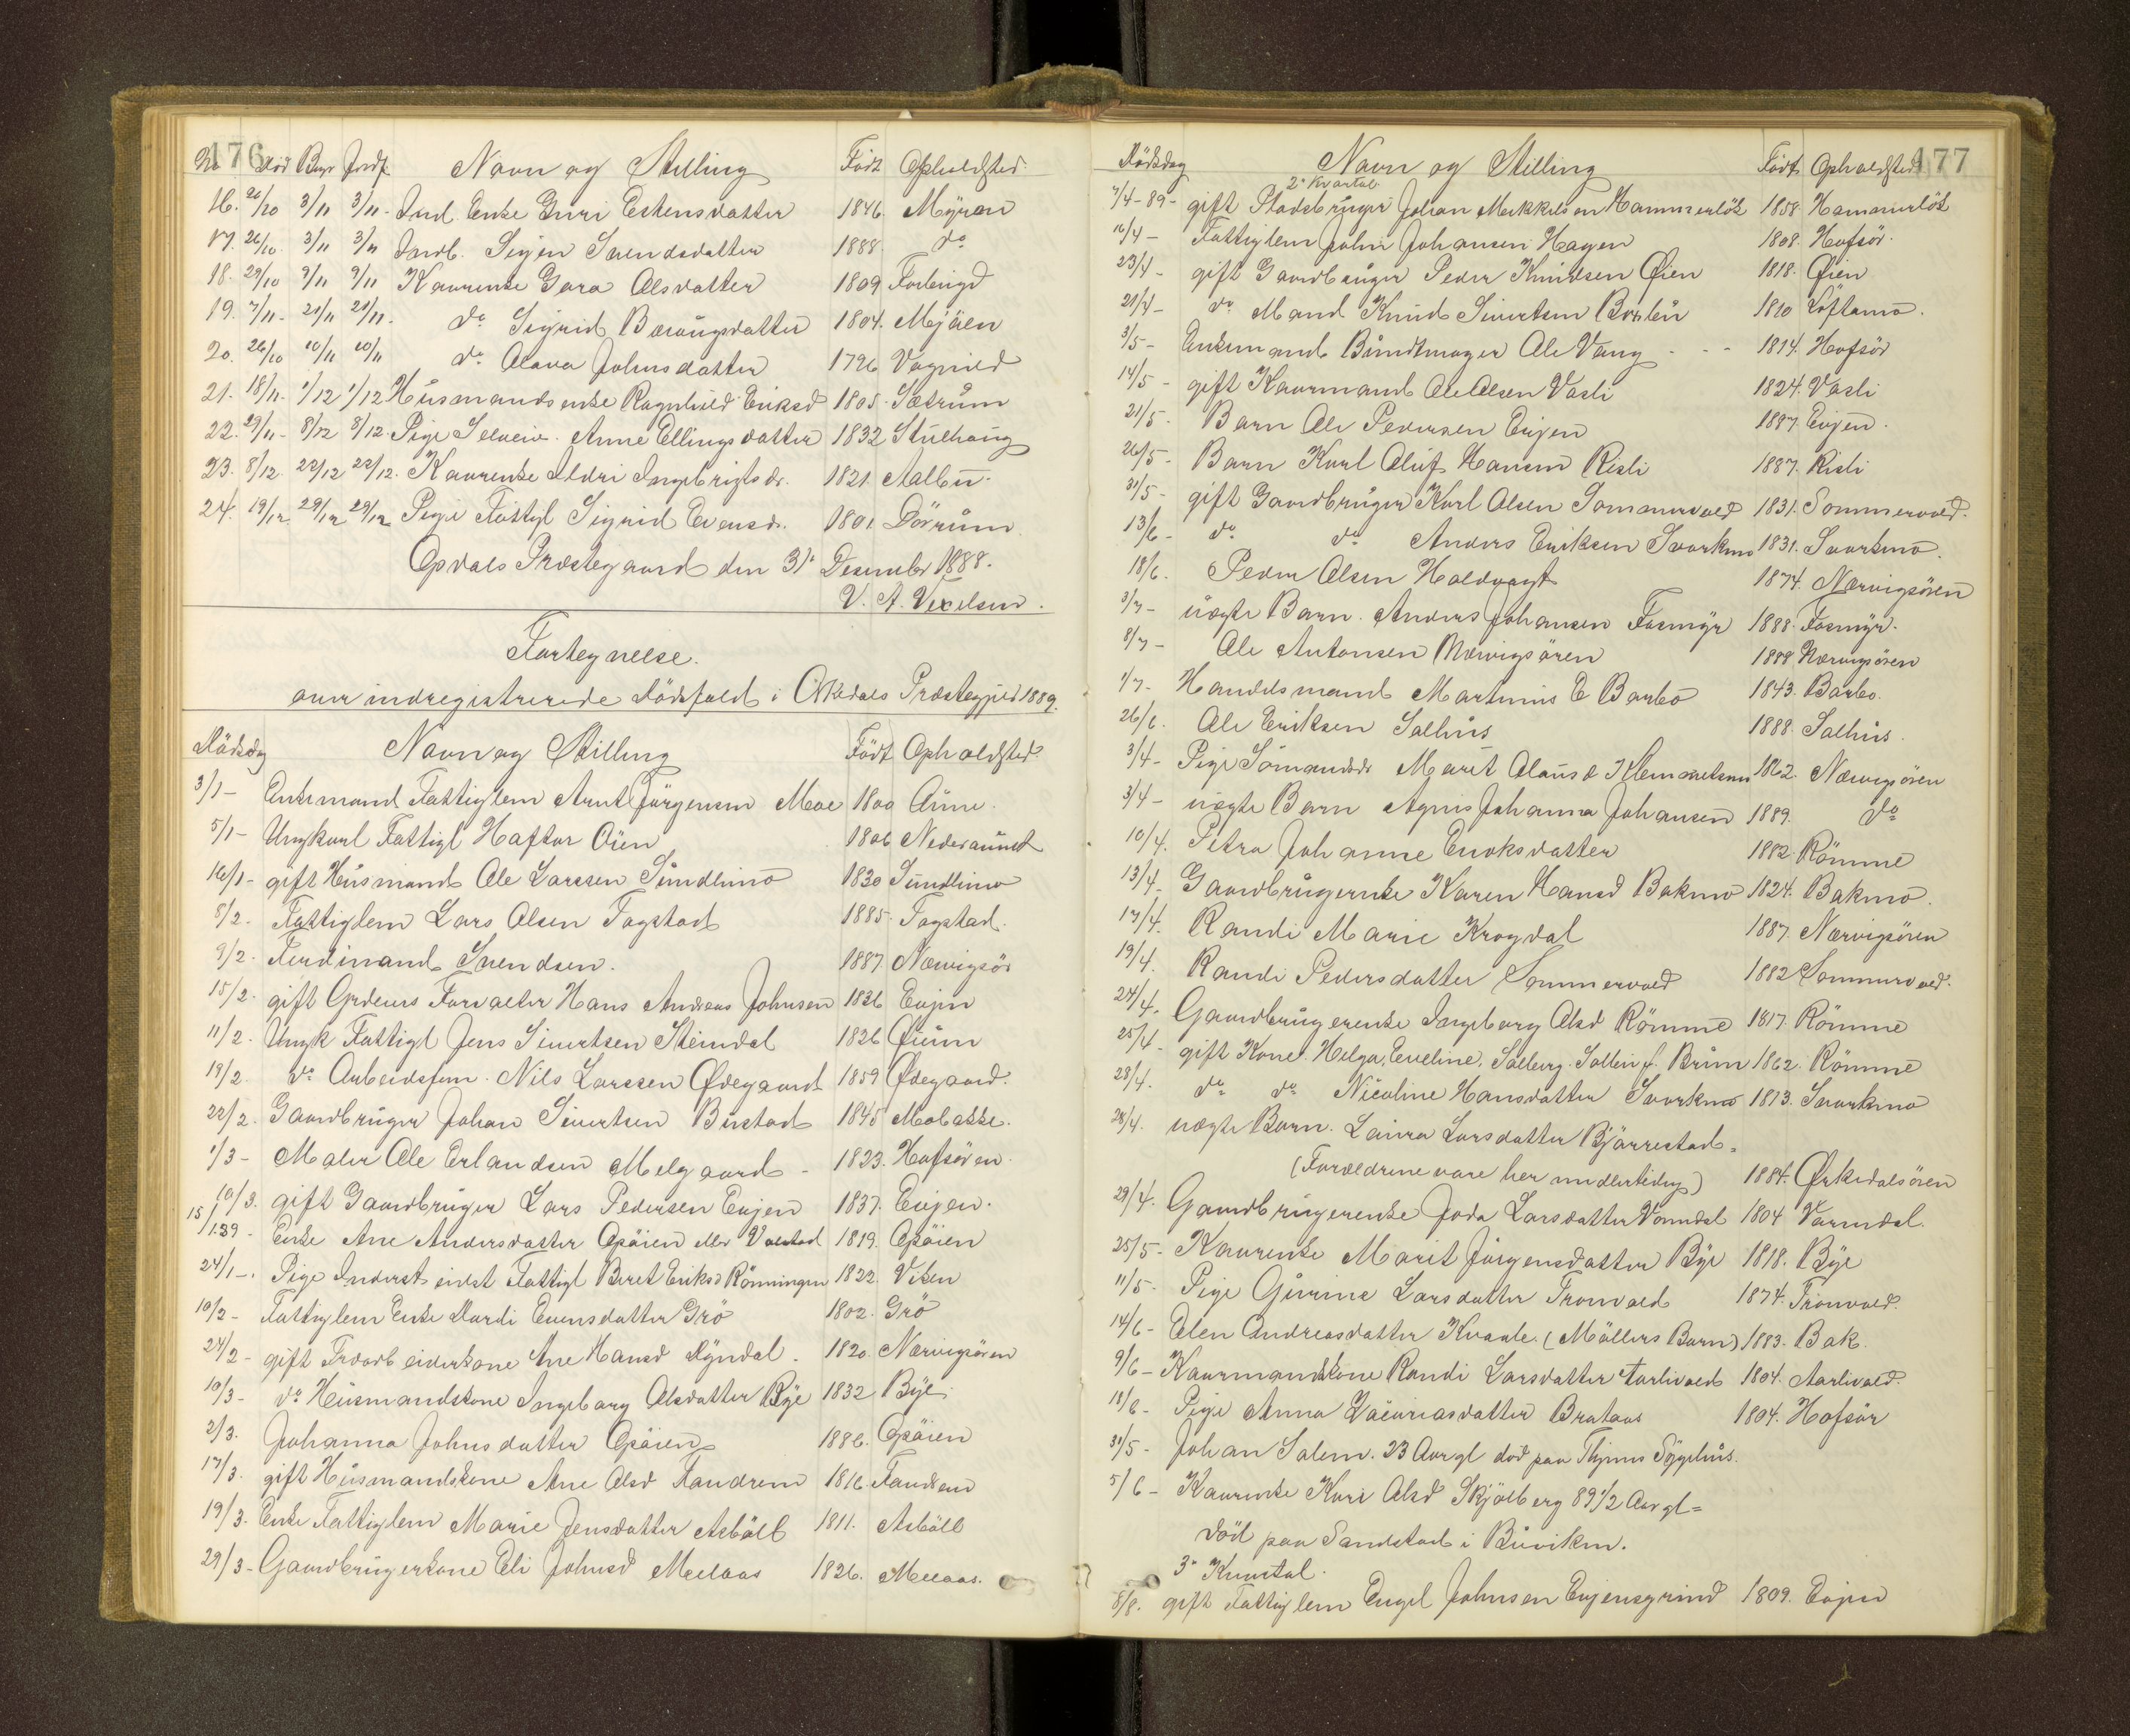 176
No Död Begr Jordf Navn og Stilling Födt Opholdsted
16. 20/10 3/11 3/11 - Ind. Enke Guri Estensdatter 1846. Mÿran
17. 26/10 3/11 3/11 Indb. Sigen Svendsdatter 1888 do
18. 29/10 9/11 9/11 Kaarenke Gora Olsdatter 1809
19. 7/11 - 21/11 21/11. do Sigrid 1804. Mjöen
20. 26/10 10/11 10/11 do Olava Johnsdatter 1796 Vognild
21. 18/11. 1/12 1/12 Húsmandsenke Ragnhild Eriksd 1805. Sætrúm
22. 29/11 - 8/12 8/12. Pige Selveier. Anne Ellingsdatter 1832 Stúlhaúg
23. 8/12. 22/12 22/12. Kaarenke Ildri Ingebrigtsdr. 1821. Aalbú
24. 19/12. 29/12 29/12 Pige Fattigl Sigrid Evensd. 1801. Dörrúm
Opdals Præstegaard den 31te Desember 1888.
V. A. Vexelsen.
Fortegnelse.
over indregistrerede Dödsfald i Orkedals Præstegjeld 1889.
Dödsdag Navn og Stilling Födt Opholdsted
3/1 - Enkemand Fattiglem Arnt Jörgensen Moe 1800 Aúne.
5/1 - Ungkarl Fattigl Haftor Öien 1806
16/1 - gift Húsmand Ole Larssen Súndlimo 1830 Súndlimo
8/2. Fattiglem Lars Olsen Fagstad 1885. Fagstad.
9/2. Ferdinand Svendsen. 1887 Nærvigsör
15/2. gift Forvalter Hans Andreas Johnsen 1836 Evjen
11/2. Ungk Fattigl Jens Sivertsen Steindal 1826
19/2. do Arbeidsfem. Nils Larssen Ödegaard 1859 Ödegaard.
22/2. Gaardbrúger Johan Sivertsen Bústad 1845
1/3 - Maler Ole Erlandsen Melgaard - 1823. Hofsören
10/3. gift Gaardbrúger Lars Pedersen Evjen 1837. Evjen.
15/1.89 - Enke Ane Andersdatter Opöien eller 1819. Opöien
24/1 -. Pige Inderst eidst Fattigl Beret Eriksd Rönningen 1822. Viken
10/2 - Fattiglem Enke Mardi Evensdatter Grö 1802. Grö
24/2 - gift kone Ane Hansd - 1820. Nærvigsören
10/3 - do Húsmandskone Ingeborg Olsdatter Bÿe 1832 Bÿe
2/3. Johanna Johnsdatter Opöien 1886. Opöien
17/3. gift Húsmandskone Ane Olsd Fandrem 1816. Fandrem
19/3. Enke Fattiglem Marie Jensdatter Asböll 1811. Asböll
29/3 - Gaardbrúgerkone Eli Johnsd Meelaas 1826. Meelaas.
177
Dödsdag Navn og Stilling Födt Opholdsted
2de Kvartal
7/4 - 89 - gift Pladsbrúger Johan Mekkelsen Hammerlök 1858. Hammerlök
16/4 - Fattiglem John Johansen Hagen 1808. Hofsör.
23/4 - gift Gaardbrúger Peder Knúdsen Öien 1818. Öien
21/4 - do Mand Knúd Sivertsen 1810 Löftamo.
3/5 - Enkemand Búndtmager Ole Vang - - - 1814. Hofsör
14/5 - gift Kaarmand Ole Olsen Vasli 1824. Vasli
21/5. Barn Ole Pedersen Evjen 1887. Evjen.
26/5 - Barn Karl Olúf Hansen Risli 1887. Risli
31/5 - gift Gaardbrúger Karl Olsen Sommervold 1831. Sommervold.
13/6 - do do Anders Eriksen Svorkmo 1831. Svorkmo.
18/6. Peder Olsen Holdvagt 1874. Nærvigsören
3/7 - úægte Barn. Anders Johansen Fosmÿr 1888. Fosmÿr.
8/7 - Ole Antonsen Nærvigsören 1888 Nærvigsören
1/7 - Handelsmand Martinus E Barbo 1843. Barbo.
26/6. Ole Eriksen Solhús 1888. Solhús.
3/4 - Pige Sömandsdr Marit Olaúsd Klemmetsen 1862. Nærvigsören
3/4 - úægte Barn Agnis Johanna Johansen 1889. do
10/4. Petra Johanne Enoksdatter 1882. Römme
13/4. Gaardbrúgerenke Karen Hansd Bakmo 1824. Bakmo.
17/4. Randi Marie Krogdal 1887. Nærvigsören
19/4. Randi Pedersdatter Sommervold 1882 Sommervold.
24/4. Gaardbrúgerenke Ingeborg Olsd Römme 1817. Römme
25/4 - gift Kone. Helga, Eveline, f. Brún 1862. Römme
28/4. do do Nicoline Hansdatter Svorkmo 1813. Svorkmo
28/4. úægte Barn. Laúra Larsdatter Bjørrestad.
(Forældrene vare her midlertidig) 1884. Orkedalsören
29/4. Gaardbrúgerenke Joda Larsdatter Vormdal 1804 Vormdal.
25/5 - Kaarenke Marit Jörgensdatter Bÿe 1818. Bÿe
11/5 - Pige Gúrine Larsdatter Tronvold 1874. Tronvold.
14/6 - Elen Andreasdatter Kvaale. (Möllers Barn) 1883. Bak.
9/6 - Kaarmandskone Randi Larsdatter Aarlivold 1804. Aarlivold.
18/6 - Pige Anna Brataas 1804. Hofsör
31/5 - Johan Solem. 23 Aar gl död paa Thjems Sÿgehús.
5/6 - Kaarenke Kari Olsd Skjölberg 89 1/2 Aar gl =
död paa Sandstad i Búviken.
3de Kvartal.
8/8. gift Fattiglem Engel Johnsen Evjensgrind 1809. Evjen